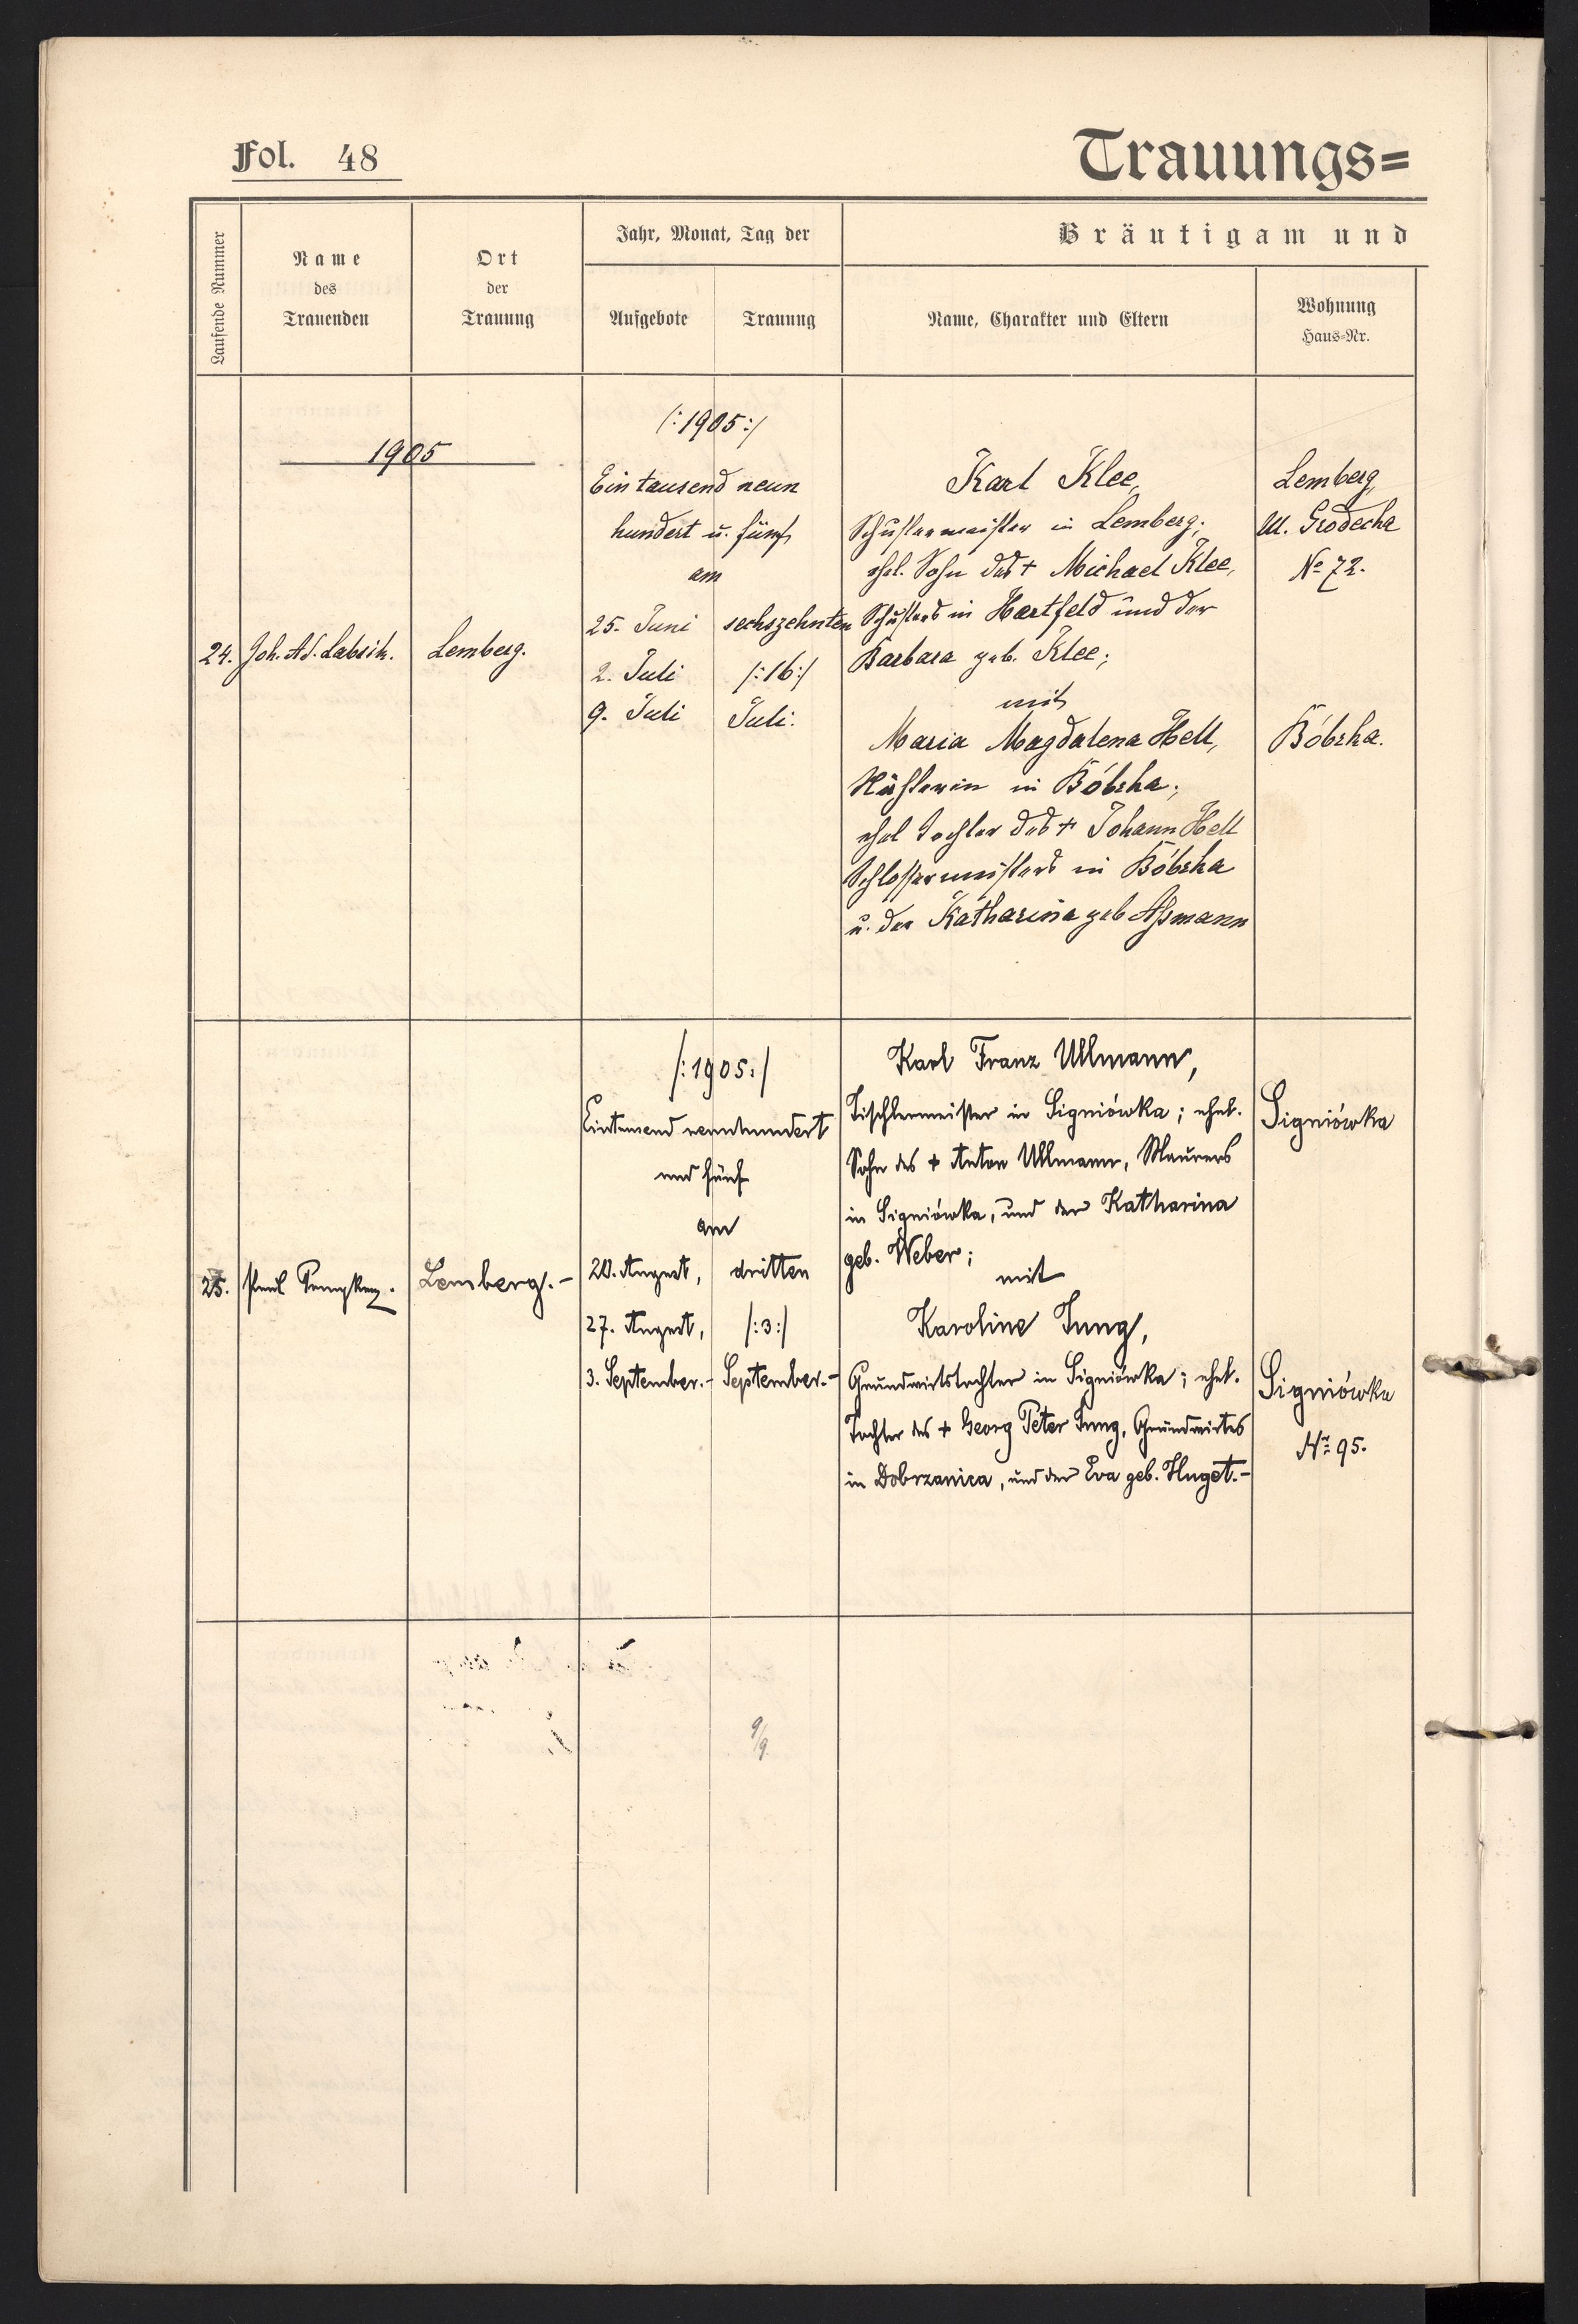 Fol. 48
Trauungs=
Laufende Nummer
Name
des
Trauenden
Ort
der
Trauung
Jahr, Monat, Tag der
Aufgebote
Trauung
Bräutigam und
Name, Charakter und Eltern
Wohnung
Haus-Nr.
1905
24.
Joh. Ad. Labsik.
Lemberg.
/:1905:/
Eintausend neun
hundert u. fünf
am
25. Juni
2. Juli
9. Juli
sechszehnten
/:16:/
Juli.
Karl Klee,
Schustermeister in Lemberg;
ehel. Sohn des + Michael Klee,
Schusters in Hartfeld und der
Barbara geb. Klee;
mit
Maria Magdalena Hell,
in Bóbrka;
ehel Tochter des + Johann Hell
Schlossermeisters in Bóbrka
u. der Katharina geb Aßmann
Lemberg,
Ul. Grodecka
No 72.
Bóbrka.
25.
Paul
Lemberg.-
/:1905:/
Eintausend neunhundert
und fünf
am
20. August,
27. August,
3. September.-
dritten
/:3:/
September.-
Karl Franz Ullmann,
Tischlermeister in Signiówka; ehel.
Sohn des + Anton Ullmann, Maurers
in Signiówka, und der Katharina
geb. Weber;
mit
Karoline Jung,
Grundwirtstochter in Signiówka; ehel.
Tochter des + Georg Peter Jung, Grundwirtes
in Dobrzanica, und der Eva geb. Huget.-
Signiówka
Signiówka
No 95.
9/9